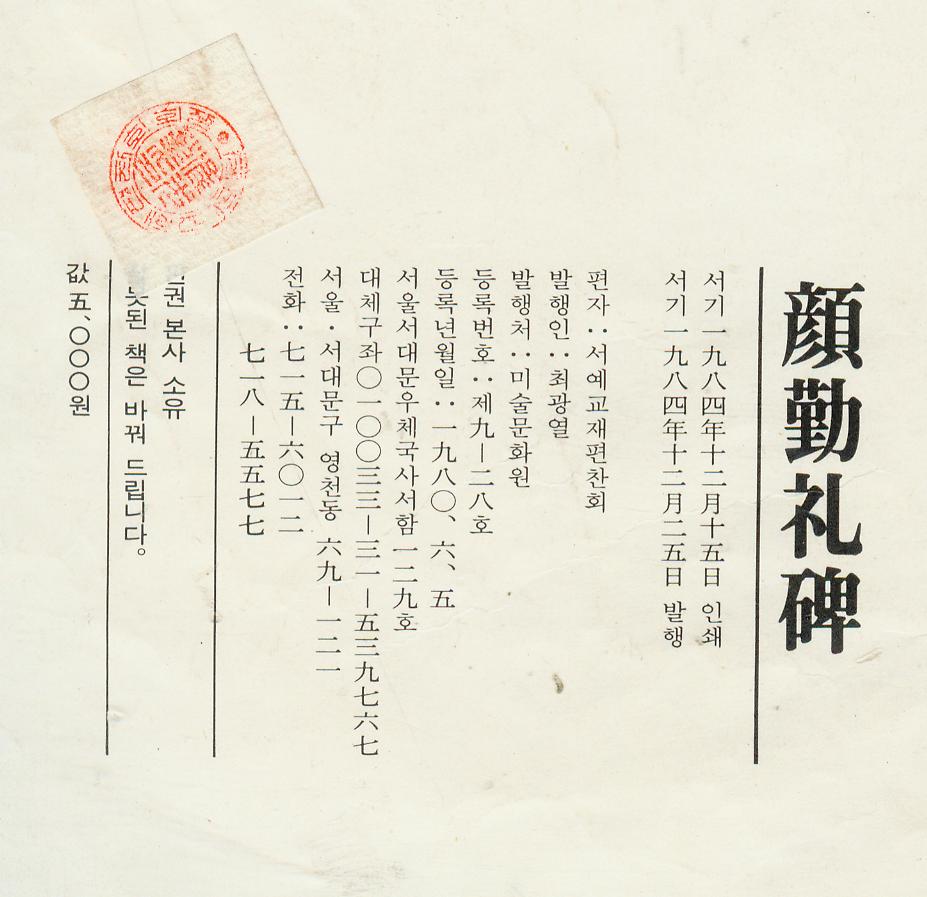 顔勤礼碑
서기 一九八四年十二月十五日 인쇄
서기 一九八四年十二月二五日 발행
편자：서예교재편찬회
발행인：최광열
발행처：미술문화원
등록번호：제九—二八호
등록년월일：一九八〇、六、五
서울서대문우체국사서함一二九호
대체구좌〇一〇〇三三—三一—五三九七六七
서울·서대문구 영천동 六九—一二一
전화：七一五—六〇一二
七一八—五五七七
본사 소유
책은 바꿔 드립니다。
값 五、〇〇〇원